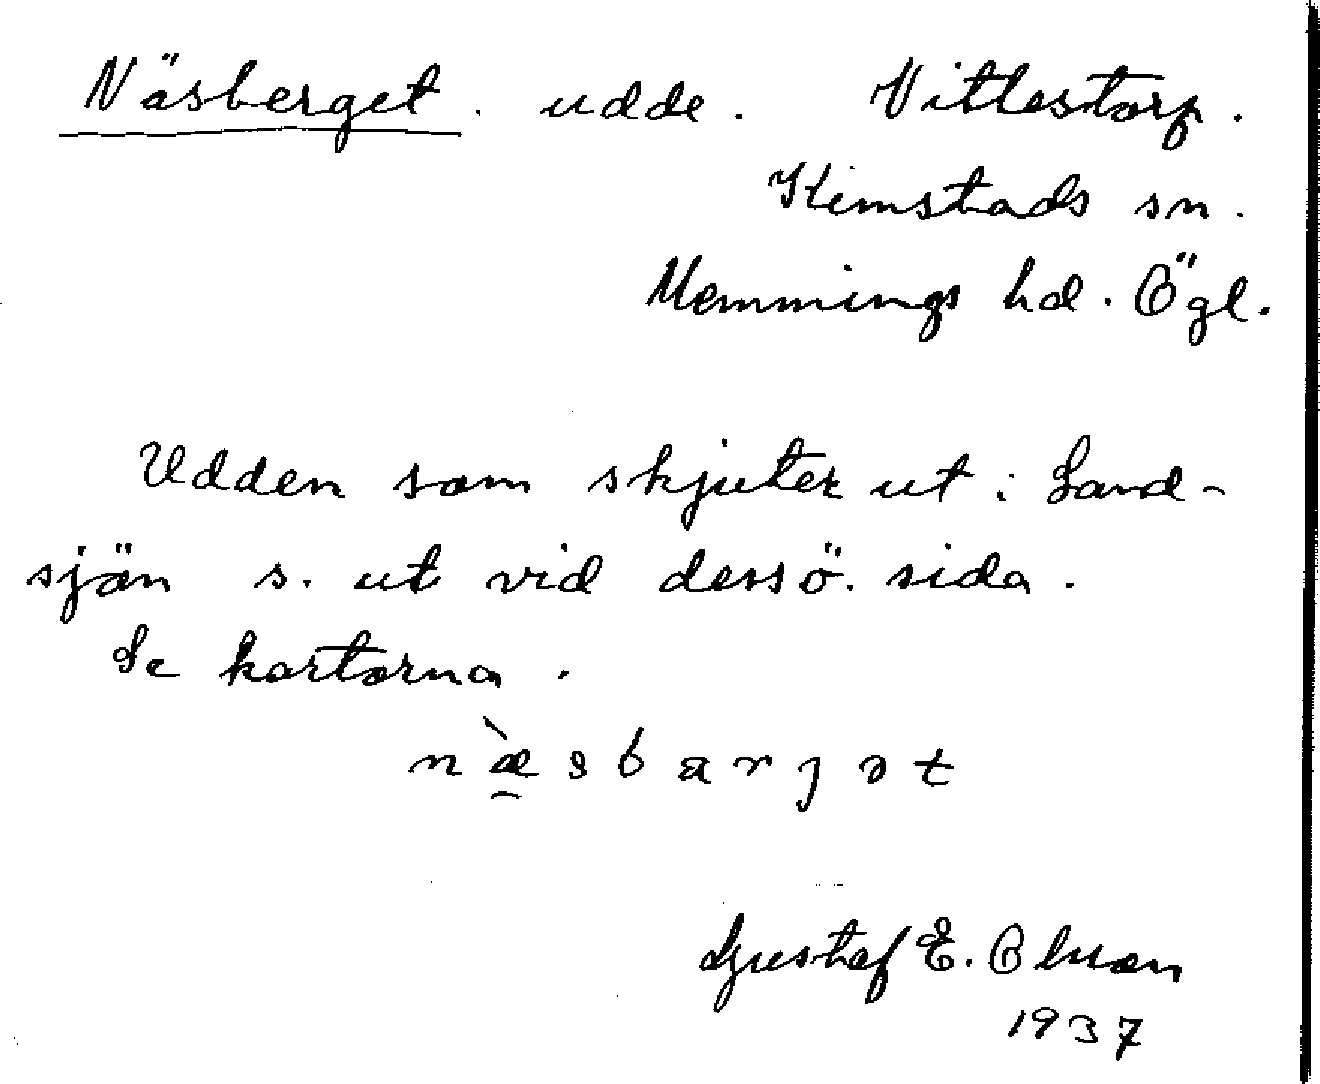 Näsberget. udde. Vittestorp.
Kimstads sn.
Memmings hd. Ögl.
Udden som skjuter ut i Sand-
sjön s. ut vid dess ö. sida.
Se kartorna.
næ̀sbarjət
Gustaf E. Olsson
1937